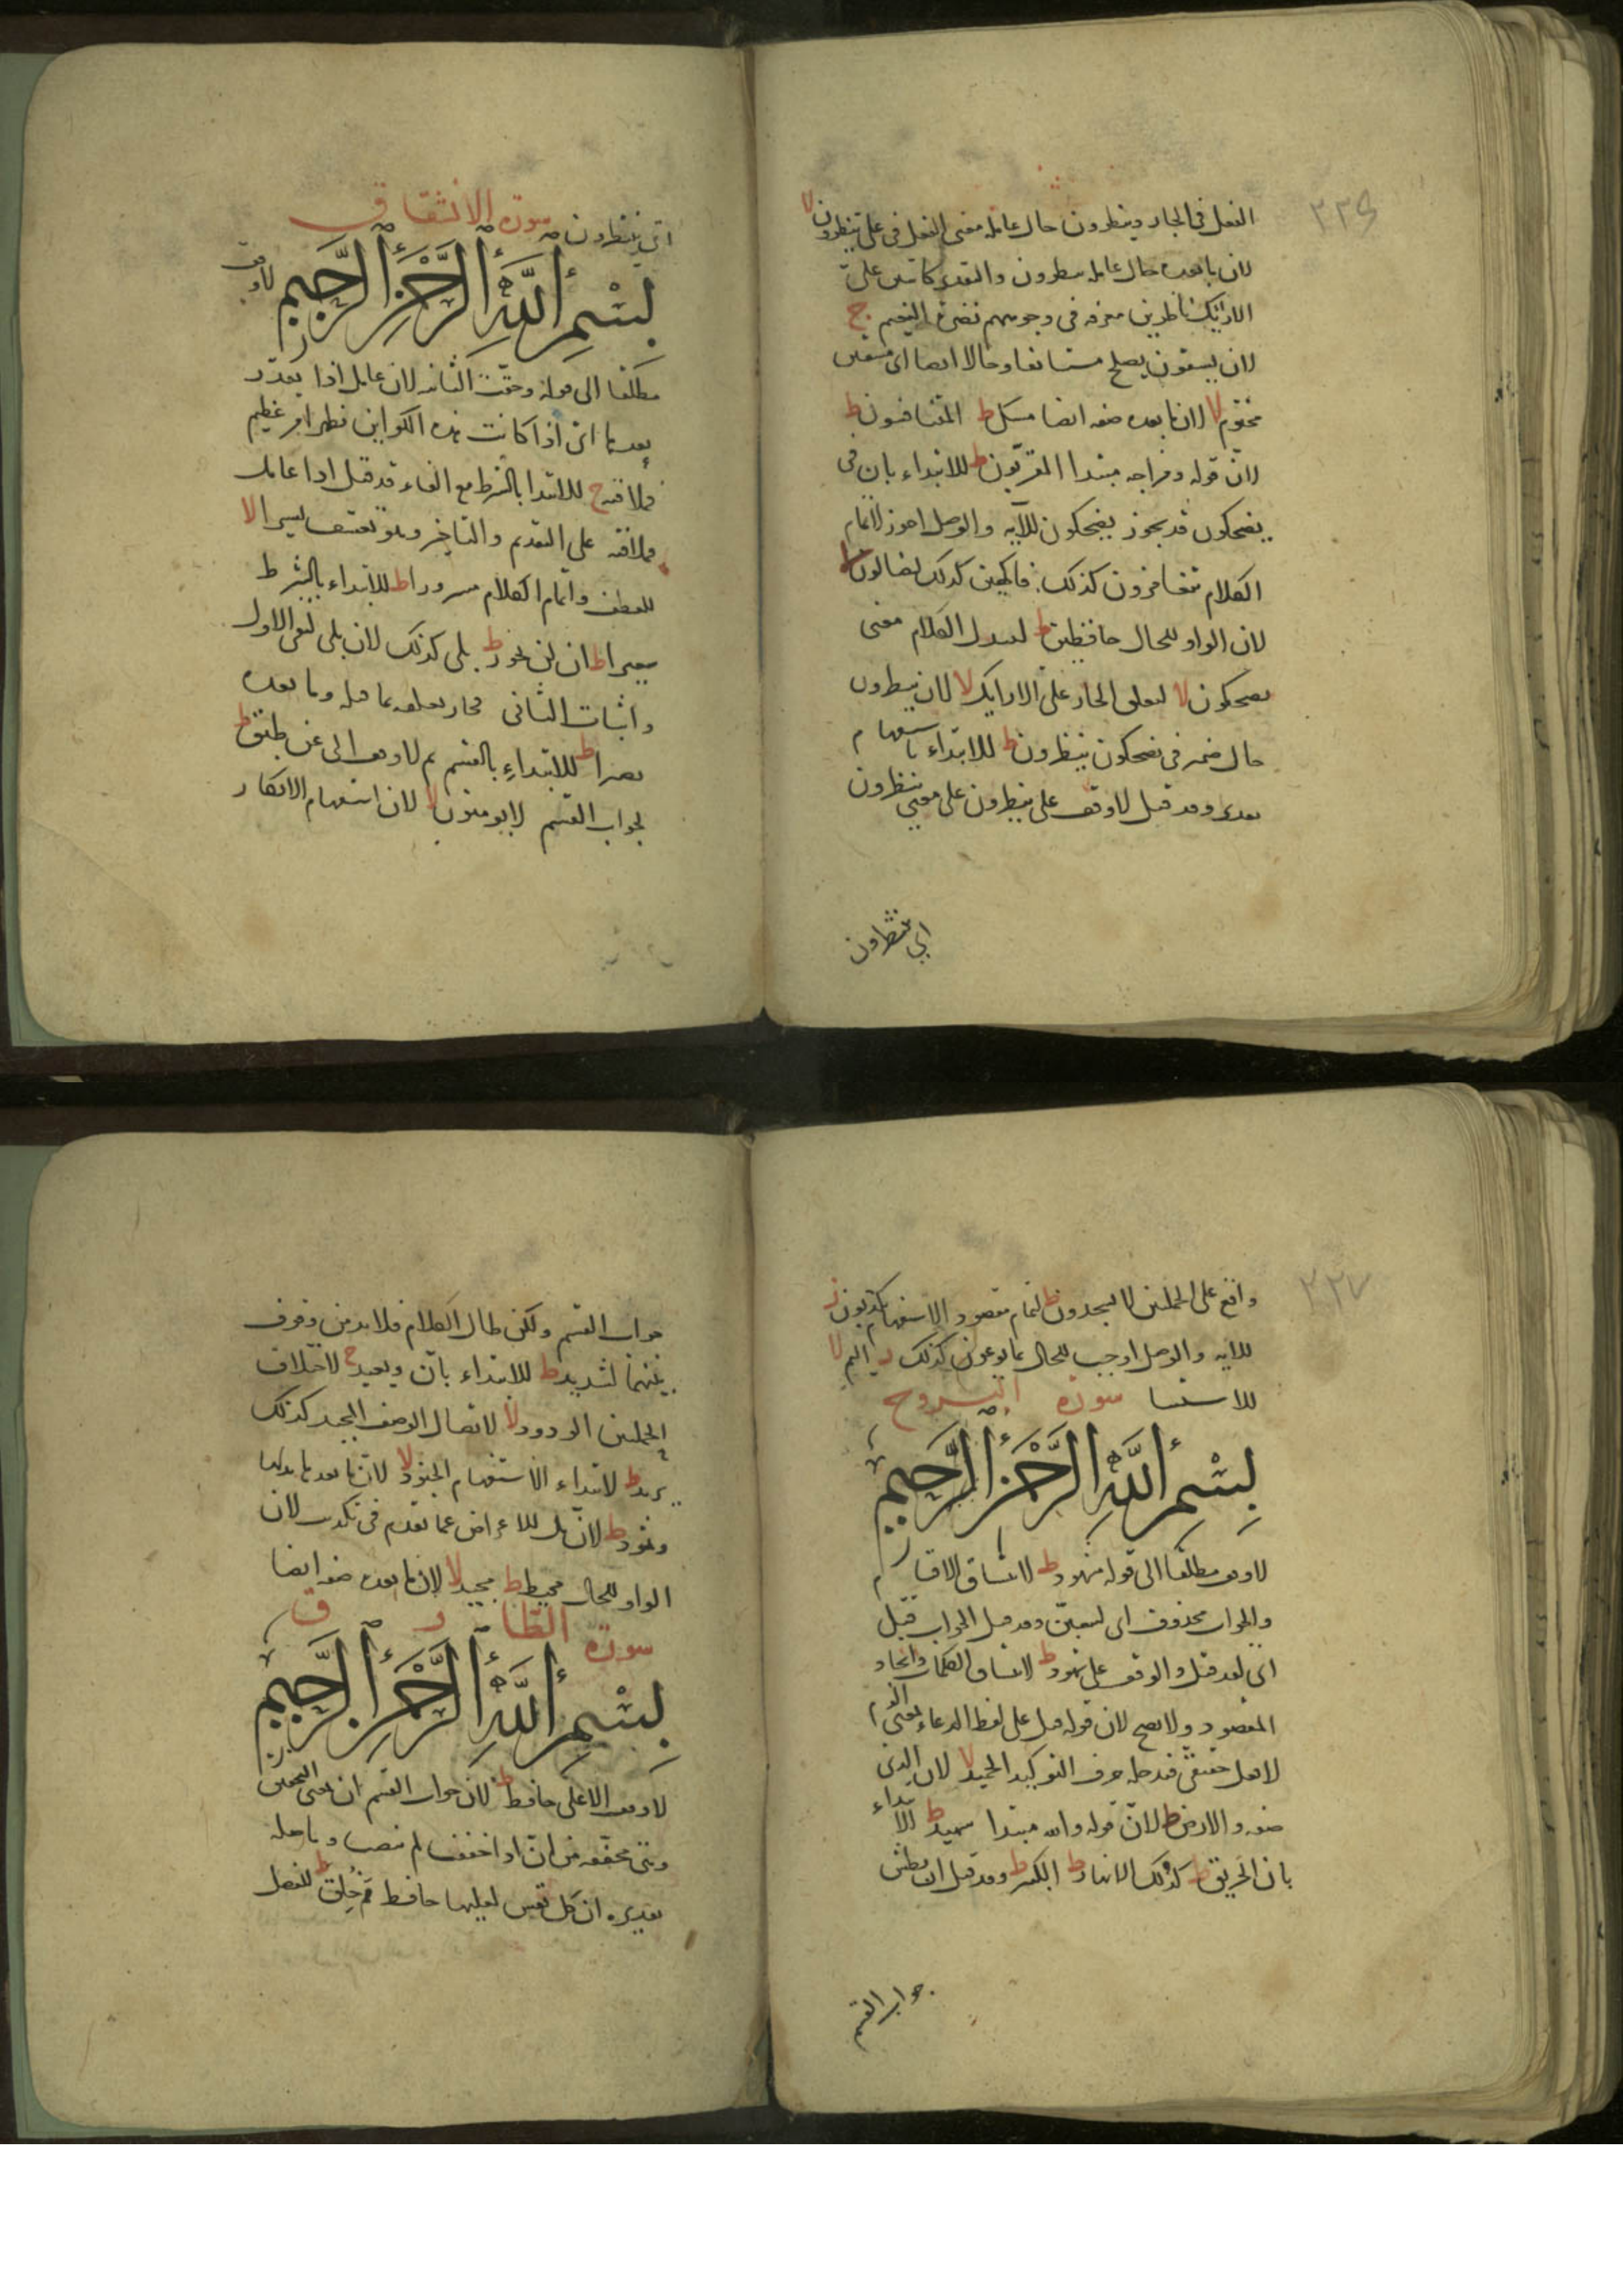 ٢٢٦
الفعل فى الجار وينظرون حال عامله معنى الفعل فى على ينظرون لا
لان ما بعده حال عامله ينظرون والتقدير كائنين على
الارائك ناظرين معرفه فى وجوههم نضرة النعيم ج
لان يسقون يصلح مستانفا وحالا ايضا اى مسقين
مختوم لا لان ما بعده صفه ايضا مسك ط المتنافسون ط
لان قوله ومزاجه مبتدا المقربون ط للابتداء بان فى
يضحكون قد يجوز يضحكون للآيه والوصل اجوز لاتمام
الكلام يتغامزون كذلك فاكهين كذلك لضالون لا
لان الواو للحال حافظين ط لتبدل الكلام معنى
يضحكون لا لتعلق الجار على الارايك لا لان ينظرون
حال ضمير فى يضحكون ينظرون ط للابتداء باستفهام
بعده وقد قيل لا وقف على ينظرون على معنى ينتظرون
اي ينتظرون
اى ينتظرون سورة الانشقاق
بسم الله الرحمن الرحيم لا وقف
مطلقا الى قوله وحقت الثانيه لان عامل اذا يعذر
بعدها اى اذا كانت هذه الكواين فظهر امر عظيم
فملاقيه ج للابتدا بالشرط مع الفاء وقد قيل اذا عامله
فملاقيه على التقديم والتاخير وهو تعسف يسيرا لا
للعطف واتمام الكلام مسرورا ط للابتداء بالشرط
سعيرا ط ان لن يحور ط بلى كذلك لان بلى لنفى الاول
واثبات الثانى فجاز تعلقه بما قبله وبما بعده
بصيرا ط للابتداء بالقسم ثم لا وقف الى عن طبق ط
لجواب القسم لا يومنون لا لان استفهام الانكار
٢٢٧
واقع على الجملتين لا يسجدون ط لتمام مقصود الاستفهام يكذبون ز
للايه والوصل اوجب للحال بما يوعون كذلك اليم لا
للاستثنا سورة البروج
بسم الله الرحمن الرحيم
لا وقف مطلقا الى قوله مشهود ط لاتساق الاقسام
والجواب محذوف اى لتبعثن وقد قيل الجواب قتل
اى لقد قتل والوقف على شهود ط لاتساق الكلمات واتحاد
المقصود ولا يصح لان قوله قتل على لفظ الدعاء لمعنى الذم
لا فعل حقيقى فيدخله حرف التوكيد الحميد لا لان الذى
صفه والارض ط لان قوله والله مبتدا شهيد ط للابتداء
بان الحريق ط كذلك الانهار ط الكبير ط وقد قيل ان بطش
جواب القسم
جواب القسم ولكن طال الكلام فلا بد من وقوف
بينهما لشديد ط للابتداء بان ويعيد ج لاختلاف
الجملتين الودود لا لاتصال الوصف المجيد كذلك
يريد ط لابتداء الاستفهام الجنود لا لان ما بعدها بدلها
وثمود ط لان بل للاعراض عما تقدم فى تكذيب لان
الواو للحال محيط ط مجيد لا لان ما بعده صفه ايضا
سورة الطارق
بسم الله الرحمن الرحيم
لا وقف الاعلى حافظ ط لان جواب القسم ان بمعنى
وهى مخففه من ان اذا خففت لم تنصب وما صله
تقديره ان كل نفس لعليها حافظ مم خلق ط للفصل